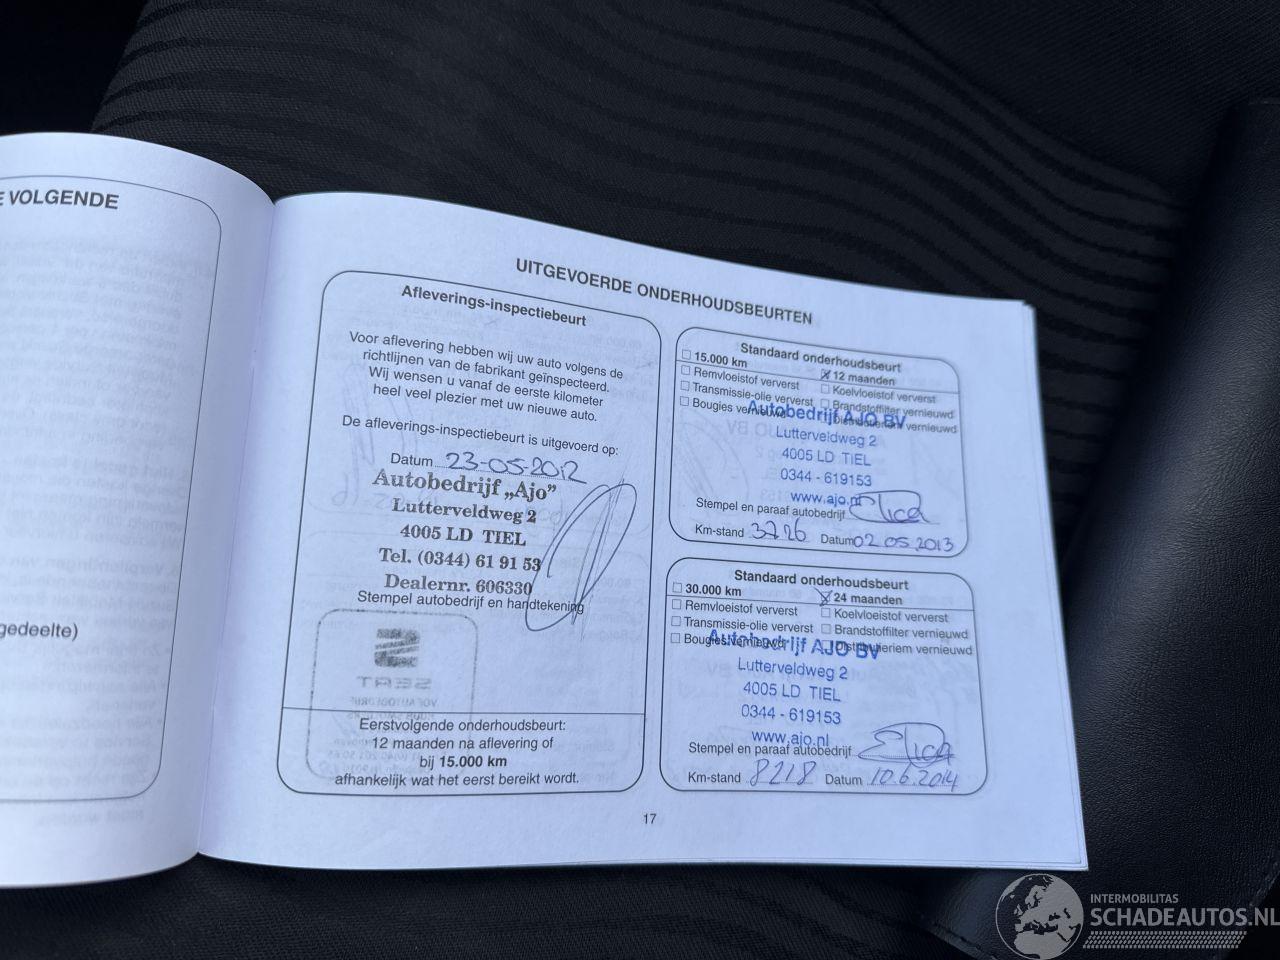 E VOLGENDE
gedeelte)
UITGEVOERDE ONDERHOUDSBEURTEN
Afleverings-inspectiebeurt
Voor aflevering hebben wij uw auto volgens de
richtlijnen van de fabrikant geïnspecteerd.
Wij wensen u vanaf de eerste kilometer
heel veel plezier met uw nieuwe auto.
De afleverings-inspectiebeurt is uitgevoerd op:
Datum 23-05-2012
Autobedrijf „Ajo”
Lutterveldweg 2
4005 LD TIEL
Tel. (0344) 61 91 53
Dealernr. 606330
Stempel autobedrijf en handtekening
SEAT
Eerstvolgende onderhoudsbeurt:
12 maanden na aflevering of
bij 15.000 km
afhankelijk wat het eerst bereikt wordt.
Standaard onderhoudsbeurt
15.000 km 12 maanden
Remvloeistof ververst Koelvloeistof ververst
Transmissie-olie ververst Brandstoffilter vernieuwd
Bougies vernieuwd Distributieriem vernieuwd
Autobedrijf AJO BV
Lutterveldweg 2
4005 LD TIEL
0344 - 619153
www.ajo.nl
Stempel en paraaf autobedrijf
Km-stand 3726 Datum 02 05 2013
Standaard onderhoudsbeurt
30.000 km 24 maanden
Remvloeistof ververst Koelvloeistof ververst
Transmissie-olie ververst Brandstoffilter vernieuwd
Bougies vernieuwd Distributieriem vernieuwd
Autobedrijf AJO BV
Lutterveldweg 2
4005 LD TIEL
0344 - 619153
www.ajo.nl
Stempel en paraaf autobedrijf
Km-stand 8218 Datum 10.6.2014
17
INTERMOBILITAS
SCHADEAUTOS.NL